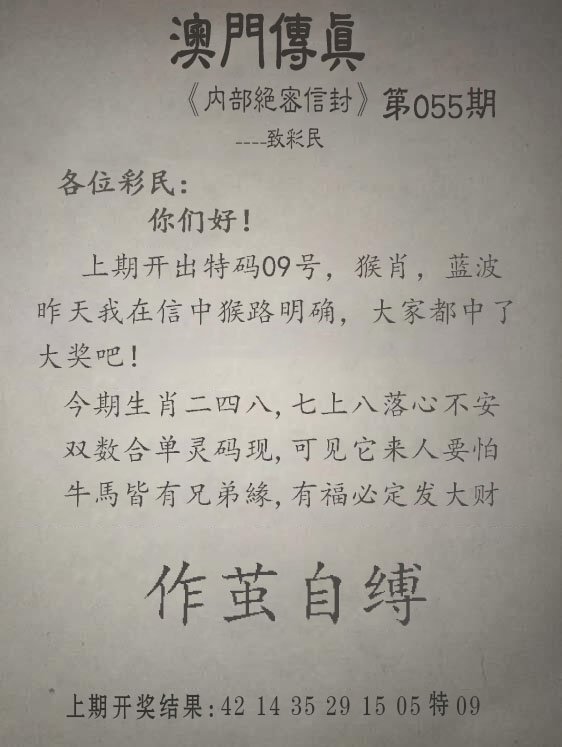 澳門傳真
《内部絕密信封》第055期
----致彩民
各位彩民：
你们好！
上期开出特码09号，猴肖，蓝波
昨天我在信中猴路明确，大家都中了
大奖吧！
今期生肖二四八,七上八落心不安
双数合单灵码现,可见它来人要怕
牛馬皆有兄弟緣,有福必定发大财
作茧自缚
上期开奖结果:42 14 35 29 15 05 特 09